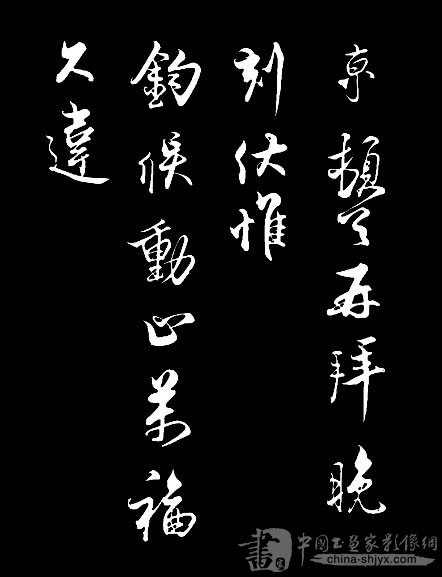 京頓首再拜晚
刻伏惟
鈞候動止萬福
久違
書 中国书画家影像網
china-shjyx.com